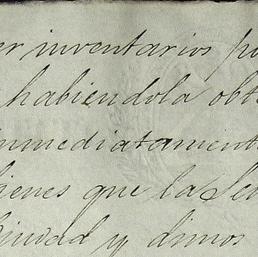 er inventarios po
habiendola obt
nmediatament
bienes que la Se
Ciudad y dimos